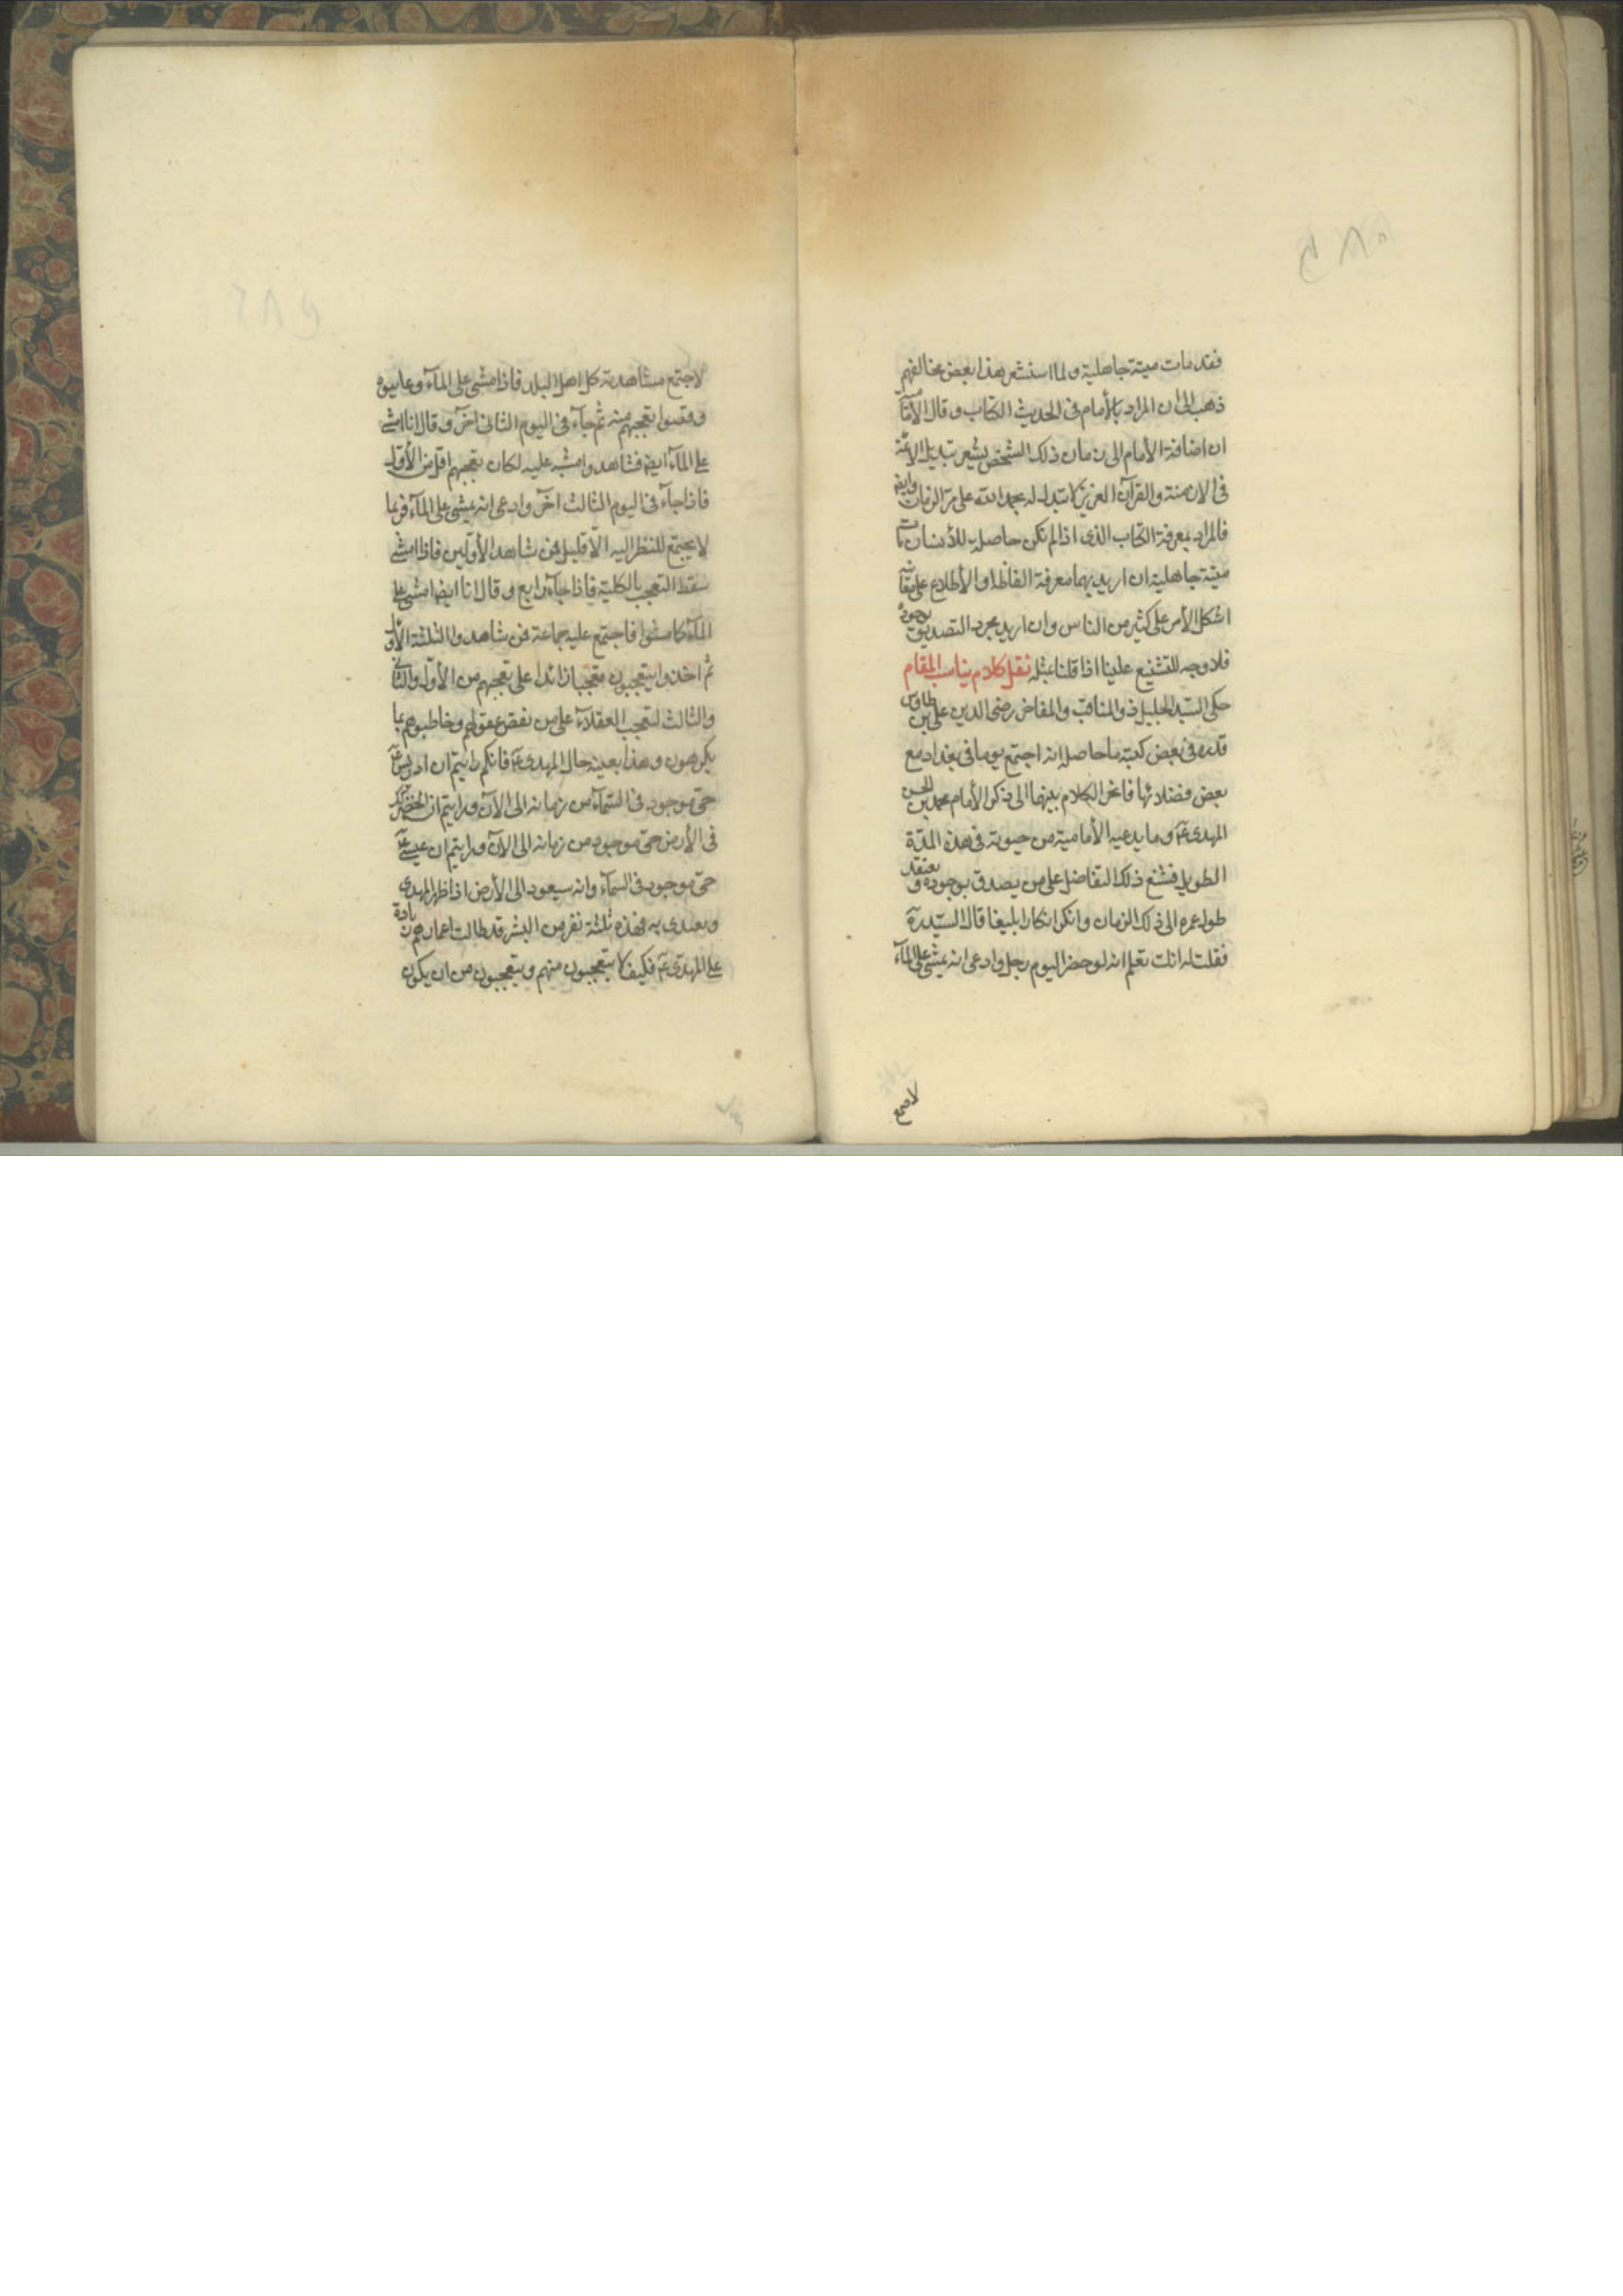 فقد مات ميتة جاهلية ولما استشعر هذا بعض مخالفيهم
ذهب الى ان المراد بالأمام فى الحديث الكتاب وقال الأمامية
ان اضافة الأمام الى زمان ذلك الشخص يشعر بتبديل الائمة
فى الازمنة والقرآن العزيز لا تبدل له بحمد الله على مر الزمان وايضا
فالمراد بمعرفة الكتاب الذى اذا لم تكن حاصلة للأنسان مات
ميتة جاهلية ان اريد بها معرفة الفاظه او الأطلاع على معانيه
اشكل الأمر على كثير من الناس وان اريد مجرد التصديق بوجوده
فلا وجه للتشنيع علينا اذا قلنا بمثله نقل كلام يناسب المقام
حكى السيد الجليل ذو المناقب والمفاخر رضى الدين على بن طاوس
قدره فى بعض كتبه ما حاصله انه اجتمع يوما فى بغداد مع
بعض فضلائها فانجر الكلام بينهما الى ذكر الأمام محمد بن الحسن
المهدى ع وما يدعيه الأمامية من حيوته فى هذه المدة
الطويلة فشنع ذلك الفاضل على من يصدق بوجوده ويعتقد
طول عمره الى ذلك الزمان وانكر انكارا بليغا قال السيد ره
فقلت له انت تعلم انه لو حضر اليوم رجل وادعى انه يمشى على المآء
لاجتمع
لاجتمع مشاهدته كل اهل البلد فاذا مشى على المآء وعاينوه
وقضوا تعجبهم منه ثم جآء فى اليوم الثانى آخر وقال انا امشى
على المآء ايضا فشاهدوا مشيه عليه لكان تعجبهم اقل من الأول
فاذا جآء فى اليوم الثالث آخر وادعى انه يمشى على المآء فربما
لا يجتمع للنظر اليه الا قليل ممن شاهد الأولين فاذا مشى
سقط التعجب بالكلية فاذا جآء رابع وقال انا ايضا امشى على
المآء كما مشوا فاجتمع عليه جماعة ممن شاهدوا الثلثة الأول
ثم اخذوا يتعجبون تعجبا زائدا على تعجبهم من الأول والثانى
والثالث لتعجب العقلآء على من نقص عقولهم وخاطبوهم بما
يكرهون وهذا بعينه حال المهدى ع فانكم رايتم ان ادريس ع
حى موجود فى السمآء من زمانه الى الآن ورايتم ان الخضر كذلك
فى الأرض حى موجود من زمانه الى الآن ورايتم ان عيسى ع
حى موجود فى السمآء وانه سيعود الى الأرض اذا ظهر المهدى
ويقتدى به فهذه ثلثة نفر من البشر قد طالت اعمارهم زيادة
على المهدى ع فكيف لا يتعجبون منهم ويتعجبون من ان يكون